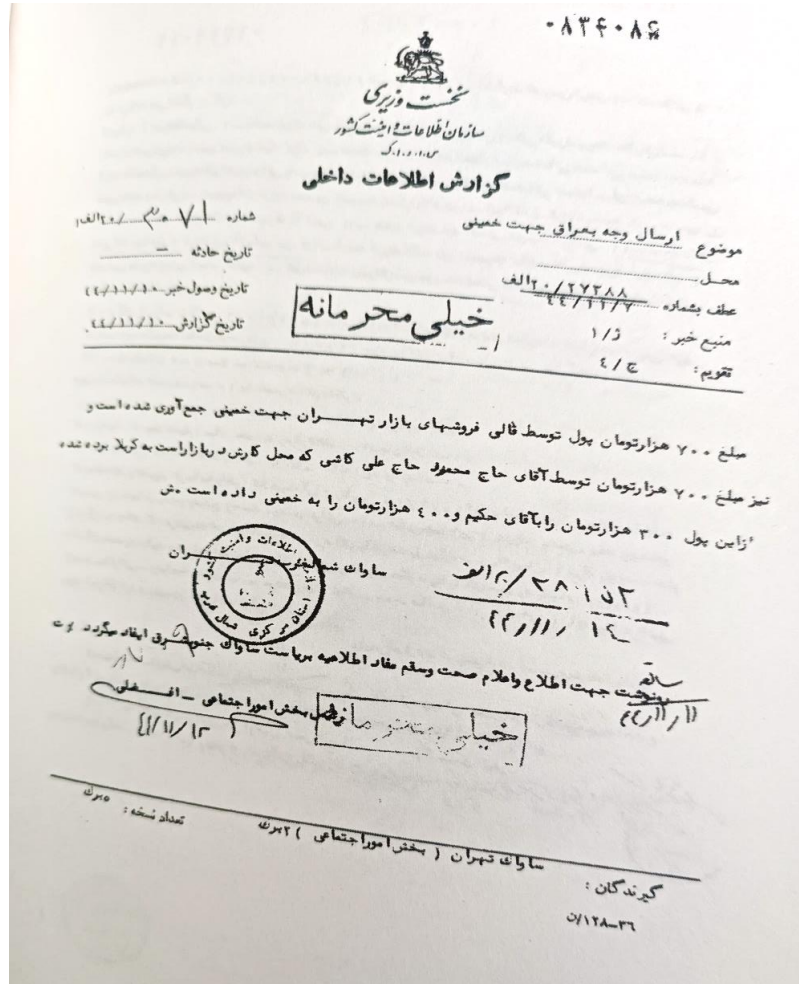 ۰۸۳۴۰۸۶
نخست وزیری
سازمان اطلاعات و امنیت کشور
س.ا.و.ا.ک
گزارش اطلاعات داخلی
موضوع ارسال وجه بعراق جهت خمینی
محل
عطف بشماره ۲۰/۲۷۲۸۸الف
۴۴/۱۱/۷
منبع خبر : ژ/۱
تقویم : ج/٤
شماره ۲۰/۳۰۷۱الف۱
تاریخ حادثه —
تاریخ وصول خبر ۴۴/۱۱/۱۰
تاریخ گزارش ۴۴/۱۱/۱۰
خیلی محرمانه
مبلغ ۷۰۰ هزارتومان پول توسط قالی فروشهای بازار تهران جهت خمینی جمع‌آوری شده‌است و
نیز مبلغ ۷۰۰ هزارتومان توسط آقای حاج محمود حاج علی کاشی که محل کارش در بازار است به کربلا برده شده
ازاین پول ۳۰۰ هزارتومان را بآقای حکیم و ٤۰۰ هزارتومان را به خمینی داده است .ش
ساواک
۴۴/۱۱/
جهت اطلاع و اعلام صحت وسقم مفاد اطلاعیه بریاست ساواک جنوبشرق ایفاد میگردد
۴۴/۱۱/۱۱
بخش امور اجتماعی – افضلی
۴۴/۱۱/۱۲
خیلی محرمانه
گیرندگان :
ساواک تهران ( بخش امور اجتماعی ) ۲برگ
تعداد نسخه : ۵برگ
۳۶–۱۲۸/ن